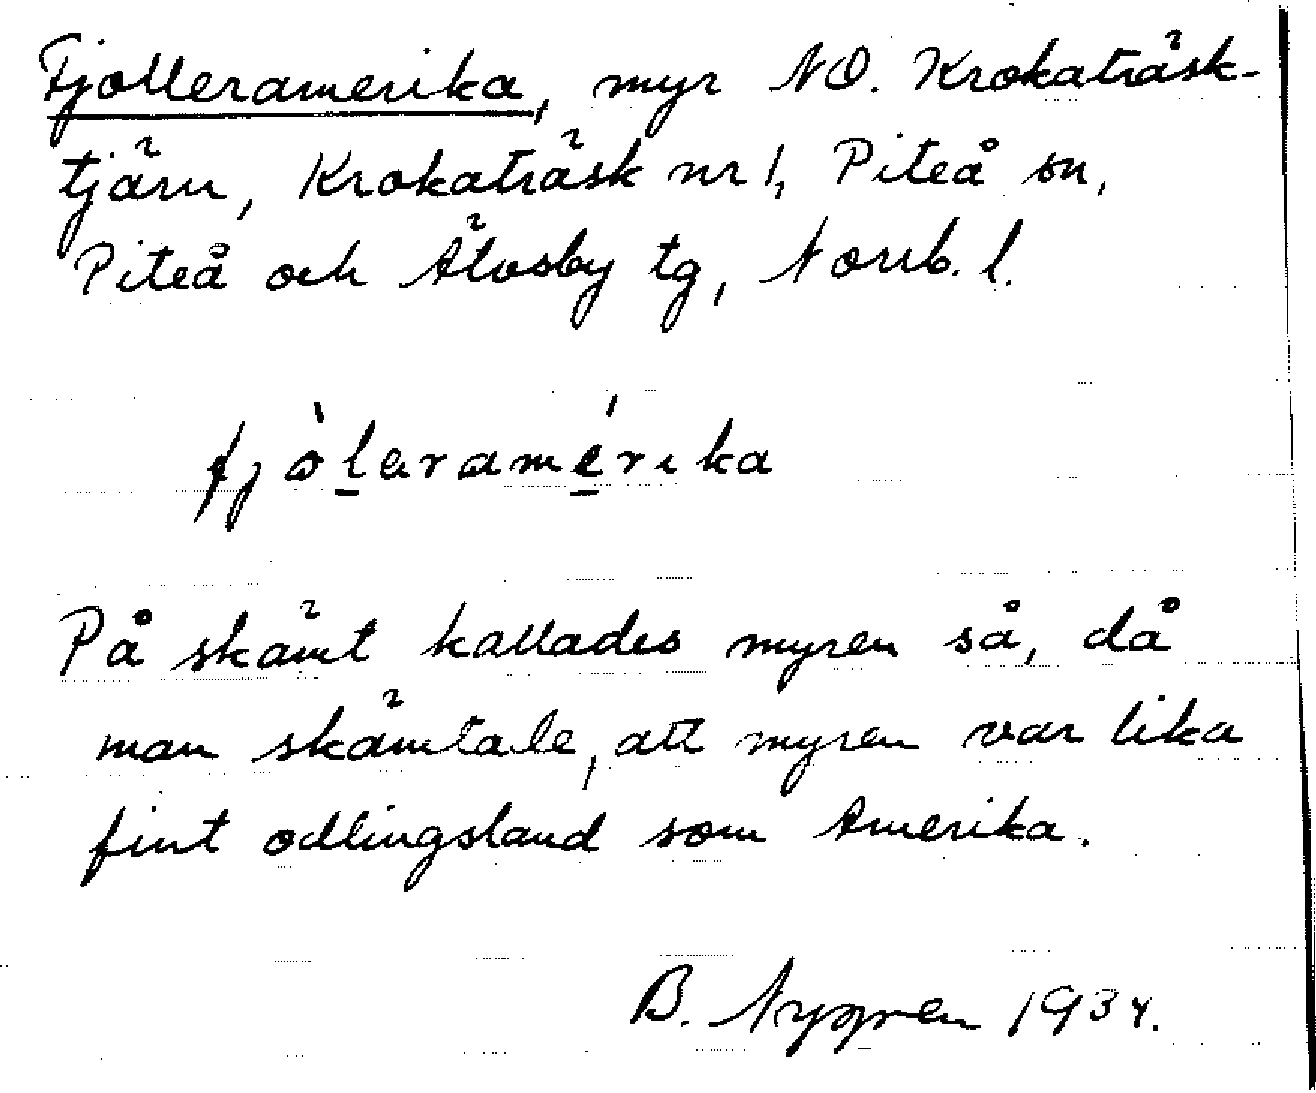 Fjolleramerika, myr NO. Krokaträsk-
tjärn, Krokaträsk nr 1, Piteå sn,
Piteå och Älvsby tg, Norrb. l.
fjòleramérika
På skämt kallades myren så, då
man skämtade, att myren var lika
fint odlingsland som Amerika.
B. Nygren 1934.